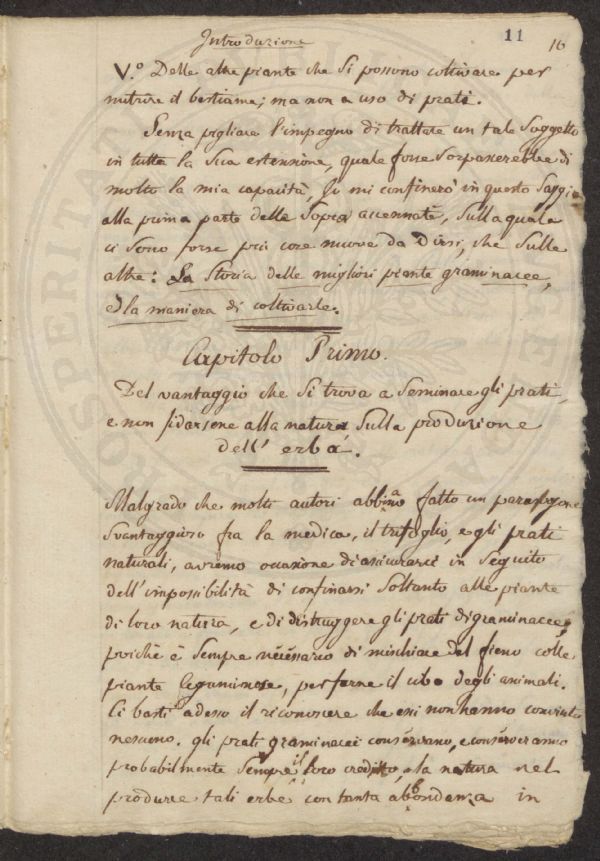 Introduzione
11
16
V.º Delle altre piante che si possono coltivare per
nutrire il bestiame; ma non a uso di prati.
Senza pigliare l'impegno di trattare un tale Soggetto
in tutta la Sua estensione, quale forse Sorpasserebbe di
molto la mia capacità, Io mi confinerò in questo Saggio
alla prima parte delle Sopra accennate, Sulla quale
ci Sono forse più cose nuove da Dirsi, che Sulle
altre: La Storia delle migliori piante graminacee,
e la maniera di coltivarle.
Capitolo Primo.
Del vantaggio che Si trova a Seminare gli prati,
e non fidarsene alla natura Sulla produzione
dell' erba.
Malgrado che molti autori abbino fatto un paragone
Svantaggioso fra la medica, il trifoglio, e gli prati
naturali, avremo ocasione di assicurarci in Seguito
dell'impossibilità di confinarsi Soltanto alle piante
di loro natura, e di distruggere gli prati di graminacee,
poichè è Sempre necessario di mischiare del fieno colle
piante leguminose, per farne il cibo degli animali.
Ci basti adesso il riconoscere che essi non hanno convinto
nessuno. gli prati graminacei conservano, e conserveranno
probabilmente Sempre il loro credito, la natura nel
produrre tali erbe con tanta abbondenza in